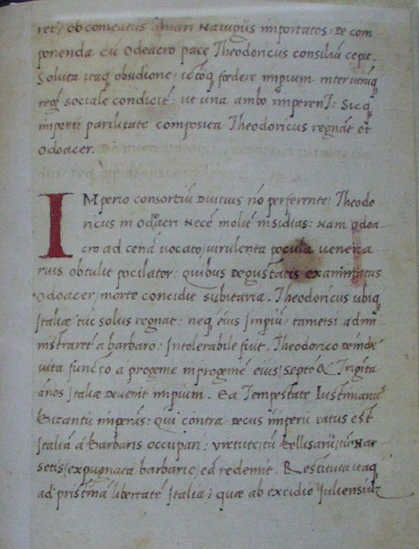 ret, ob comeatus a mari Navigiis importatos, De com
ponenda cū Odoacro pace Theodoricus consiliū cepit.
Soluta itaq obsidione, ictoq foedere impium inter utrūq
regē sociale condicit: ut una ambo imperent: Sicq
imperii parilitate composita Theodoricus regnat et
Odoacer.
IMperio consortiū Diutius nō perferente, Theodo
ricus in Odoacri Necē molit insidias: Nam Odoa
cro ad cenā vocato, virulenta pocula venena
rius obtulit pocilator: quibus degustatis exanimatus
Odoacer, morte concidit subitaria. Theodoricus ubiq
Italiae tūc solus regnat: neq eius Impiū, tametsi admi
nistraret a barbaro, Intolerabile fuit. Theodorico deinde
vita functo a progenie in progeniē eius, Septē & Trigīta
anos Italiae Devenit impium. Ea Tempestate Iustinianus
Bizantii imperās: Qui contra Decus imperii ratus est
Italiā a Barbaris occupari: virtute tū Bellisarii, tū Nar
setis, expugnata barbarie, eā redemit. Restituta itaq
ad pristinā libertatē Italia, quae ab excidio Iuliensiū